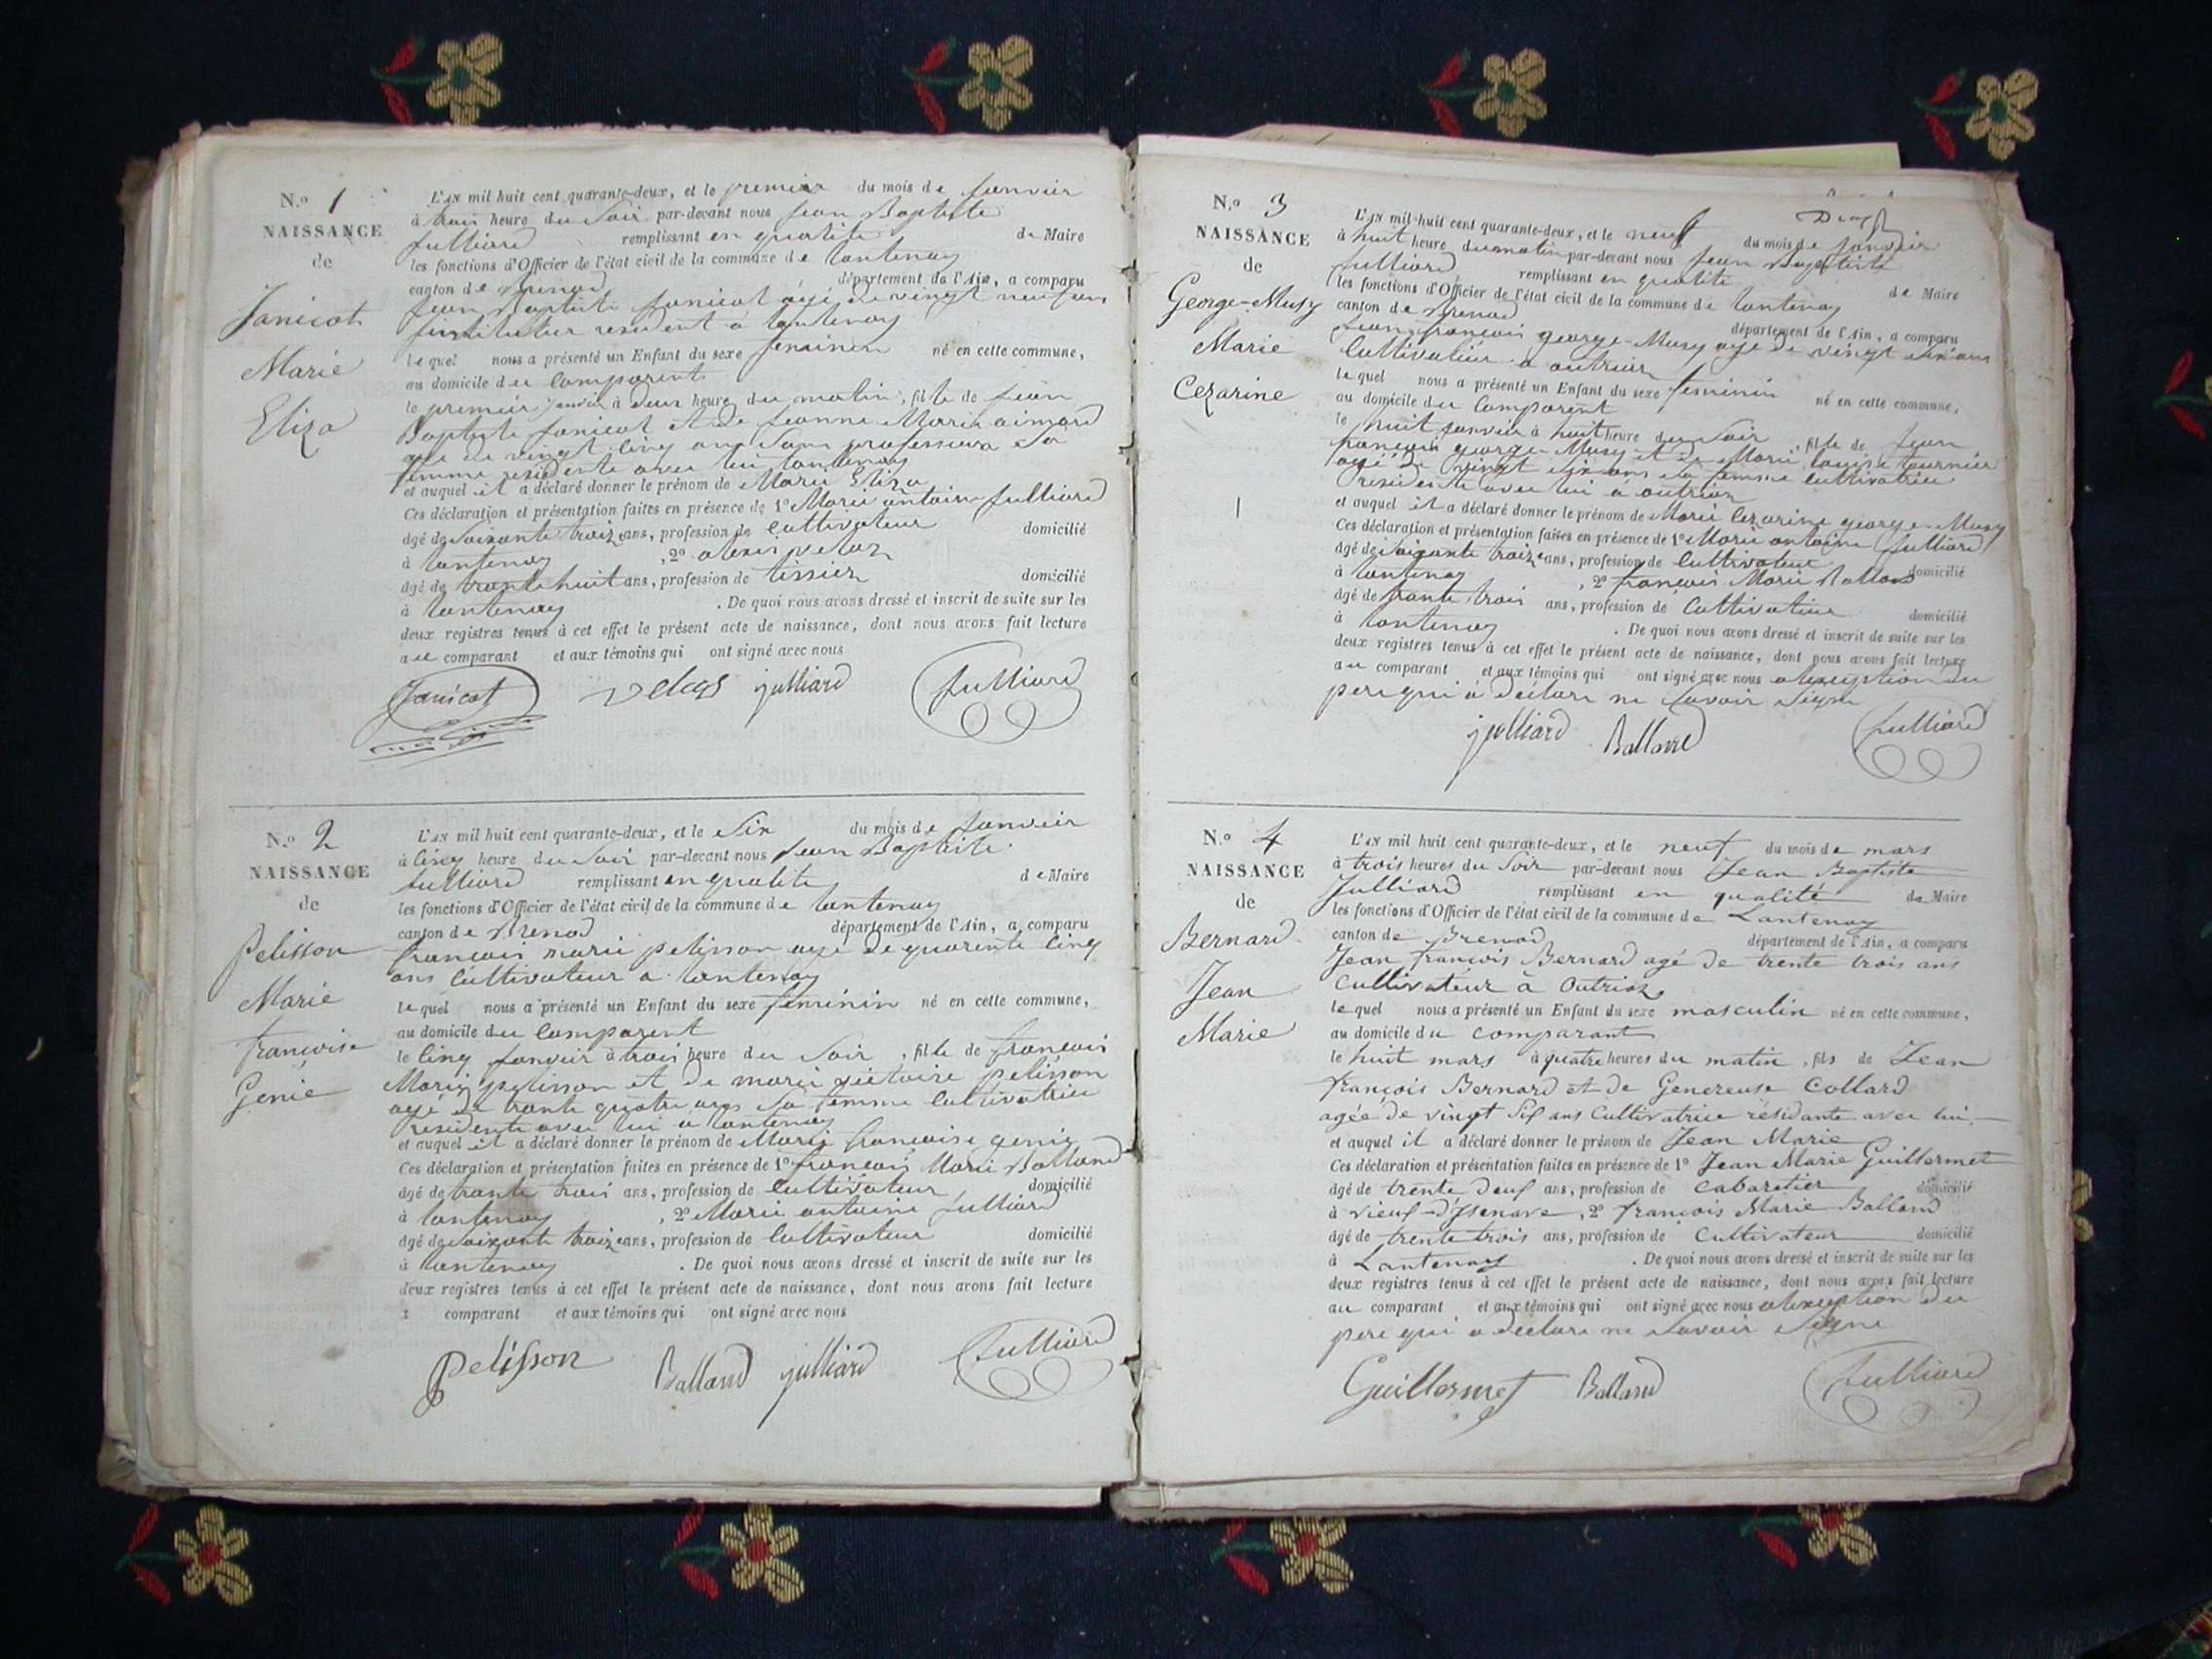 N.o 1
NAISSANCE
de
Janicot
Marie
Eliza
L'AN mil huit cent quarante-deux, et le premier du mois de janvier
à trois heure du soir par-devant nous jean Baptiste
julliard remplissant en qualite de Maire
les fonctions d'Officier de l'état civil de la commune de lantenay
canton de Brenod département de l'Ain, a comparu
jean Baptiste janicot agé de vingt neuf ans
instituteur resident a lantenay
lequel nous a présenté un Enfant du sexe feminin né en cette commune,
au domicile du comparent
le premier janvier à deux heure du matin, fille de jean
Baptiste janicot et de jeanne Marie aimard
agé de vingt cinq ans sans professions sa
femme residente avec lui lantenay
et auquel il a déclaré donner le prénom de Marie Eliza
Ces déclaration et présentation faites en présence de 1o Marie antoine julliard
âgé de soixante treize ans, profession de cultivateur domicilié
à lantenay, 2o alexis velaz
âgé de trante huit ans, profession de tissier domicilié
à lantenay. De quoi nous avons dressé et inscrit de suite sur les
deux registres tenus à cet effet le présent acte de naissance, dont nous avons fait lecture
au comparant et aux témoins qui ont signé avec nous
Janicot julliard julliard
N.o 2
NAISSANCE
de
Pelisson
Marie
francoise
Genie
L'AN mil huit cent quarante-deux, et le six du mois de janvier
à cinq heure du soir par-devant nous jean Baptiste
julliard remplissant en qualite de Maire
les fonctions d'Officier de l'état civil de la commune de lantenay
canton de Brenod département de l'Ain, a comparu
francois marie pelisson agé de quarente cinq
ans cultivateur a lantenay
lequel nous a présenté un Enfant du sexe feminin né en cette commune,
au domicile du comparent
le cinq janvier à trois heure du soir, fille de francois
Marie pelisson et de marie pelisson
agé de trante quatre ans sa femme cultivatrice
residente avec lui a lantenay
et auquel il a déclaré donner le prénom de Marie francoise genie
Ces déclaration et présentation faites en présence de 1o francois Marie Balland
âgé de trante trois ans, profession de cultivateur domicilié
à lantenay, 2o Marie antoine julliard
âgé de soixante treize ans, profession de cultivateur domicilié
à lantenay. De quoi nous avons dressé et inscrit de suite sur les
deux registres tenus à cet effet le présent acte de naissance, dont nous avons fait lecture
comparant et aux témoins qui ont signé avec nous
pelisson Balland julliard julliard
Deux
N.o 3
NAISSANCE
de
George-Musy
Marie
Cezarine
L'AN mil huit cent quarante-deux, et le neuf du mois de janvier
à huit heure du matin par-devant nous jean Baptiste
julliard remplissant en qualite de Maire
les fonctions d'Officier de l'état civil de la commune de lantenay
canton de Brenod département de l'Ain, a comparu
jean francois george-Musy agé de vingt six ans
cultivateur a outriaz
lequel nous a présenté un Enfant du sexe feminin né en cette commune,
au domicile du comparent
le huit janvier à huit heure du soir, fille de jean
francois george-Musy et de Marie louise tournier
agé de vingt six ans sa femme cultivatrice
residente avec lui a outriaz
et auquel il a déclaré donner le prénom de Marie Cezarine george-Musy
Ces déclaration et présentation faites en présence de 1o Marie antoine julliard
âgé de soixante treize ans, profession de cultivateur domicilié
à lantenay, 2o francois Marie Balland
âgé de trante trois ans, profession de cultivateur domicilié
à lantenay. De quoi nous avons dressé et inscrit de suite sur les
deux registres tenus à cet effet le présent acte de naissance, dont nous avons fait lecture
au comparant et aux témoins qui ont signé avec nous alexeption du
pere qui a declare ne savoir signe
julliard Balland julliard
N.o 4
NAISSANCE
de
Bernard
Jean
Marie
L'AN mil huit cent quarante-deux, et le neuf du mois de mars
à trois heures du soir par-devant nous Jean Baptiste
Julliard remplissant en qualité de Maire
les fonctions d'Officier de l'état civil de la commune de Lantenay
canton de Brenod département de l'Ain, a comparu
Jean françois Bernard agé de trente trois ans
cultivateur à Outriaz
lequel nous a présenté un Enfant du sexe masculin né en cette commune,
au domicile du comparant
le huit mars à quatre heures du matin, fils de Jean
françois Bernard et de Genereuse Collard
agée de vingt six ans cultivatrice résidante avec lui
et auquel il a déclaré donner le prénom de Jean Marie
Ces déclaration et présentation faites en présence de 1o Jean Marie Guillermet
âgé de trente deux ans, profession de cabaretier domicilié
à vieux-d'Izenave, 2o françois Marie Balland
âgé de trente trois ans, profession de cultivateur domicilié
à Lantenay. De quoi nous avons dressé et inscrit de suite sur les
deux registres tenus à cet effet le présent acte de naissance, dont nous avons fait lecture
au comparant et aux témoins qui ont signé avec nous alexeption du
pere qui a declare ne savoir signe
Guillermet Balland julliard